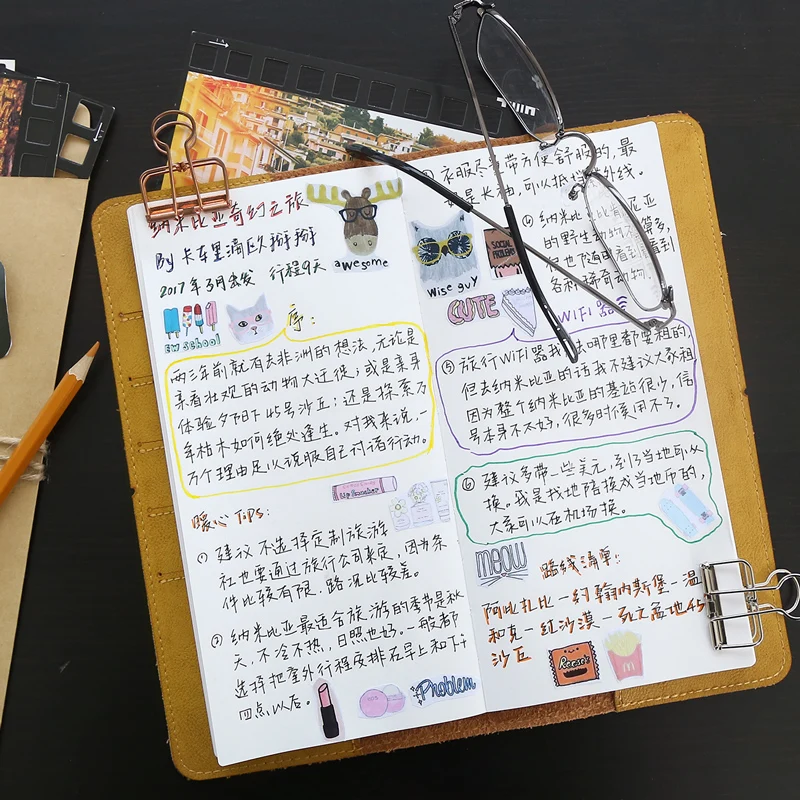 纳米比亚奇幻之旅
By 卡车里滴欧掰掰
2017年3月出发 行程9天
awesome
EW school
序:
两三年前就有去非洲的想法,无论是
亲看壮观的动物大迁徙;或是亲身
体验夕阳下45号沙丘;还是探索万
年枯木如何绝处逢生。对我来说,一
万个理由足以说服自己付诸行动。
暖心Tips:
① 建议不选择定制旅游
社也要通过旅行公司来定,因为条
件比较有限,路况比较差。
② 纳米比亚最适合旅游的季节是秋
天,不冷不热,日照也好。一般都
选择把室外行程安排在早上和下午
四点以后。
Problem
衣服尽 带方便舒服的,最
是长袖,可以抵挡 外线。
④ 纳米比亚
的野生动物
各种稀奇动物。
Wise guy
SOCIAL
PROBLEMS
CUTE
WIFI 器
⑤ 旅行WiFi器我 哪里都要租的,
但去纳米比亚的话我不建议大家租
因为整个纳米比亚的基站很少,信
号本身不太好,很多时候用不了。
⑥ 建议多带一些美元,到了当地可以
换。我是找地陪换成当地币的,
大家可以在机场换。
meow
路线清单:
阿比扎比一约翰内斯堡一温
和克一红沙漠一死亡盆地45
沙丘
Reese's